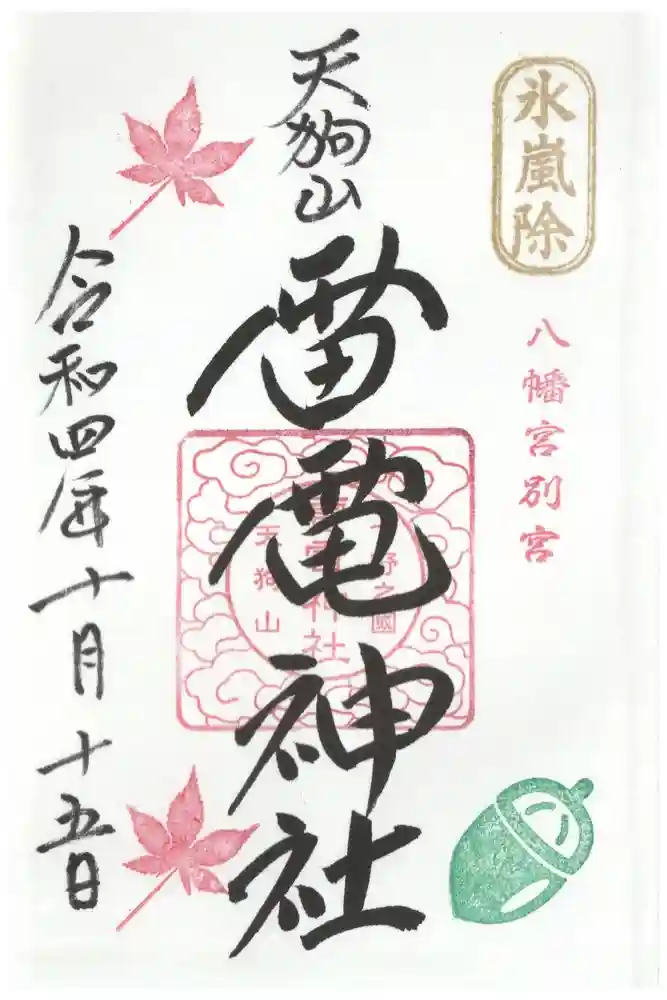 氷嵐除
八幡宮別宮
天狗山
雷電神社
野之國
電神社
天狗山
令和四年十月十五日